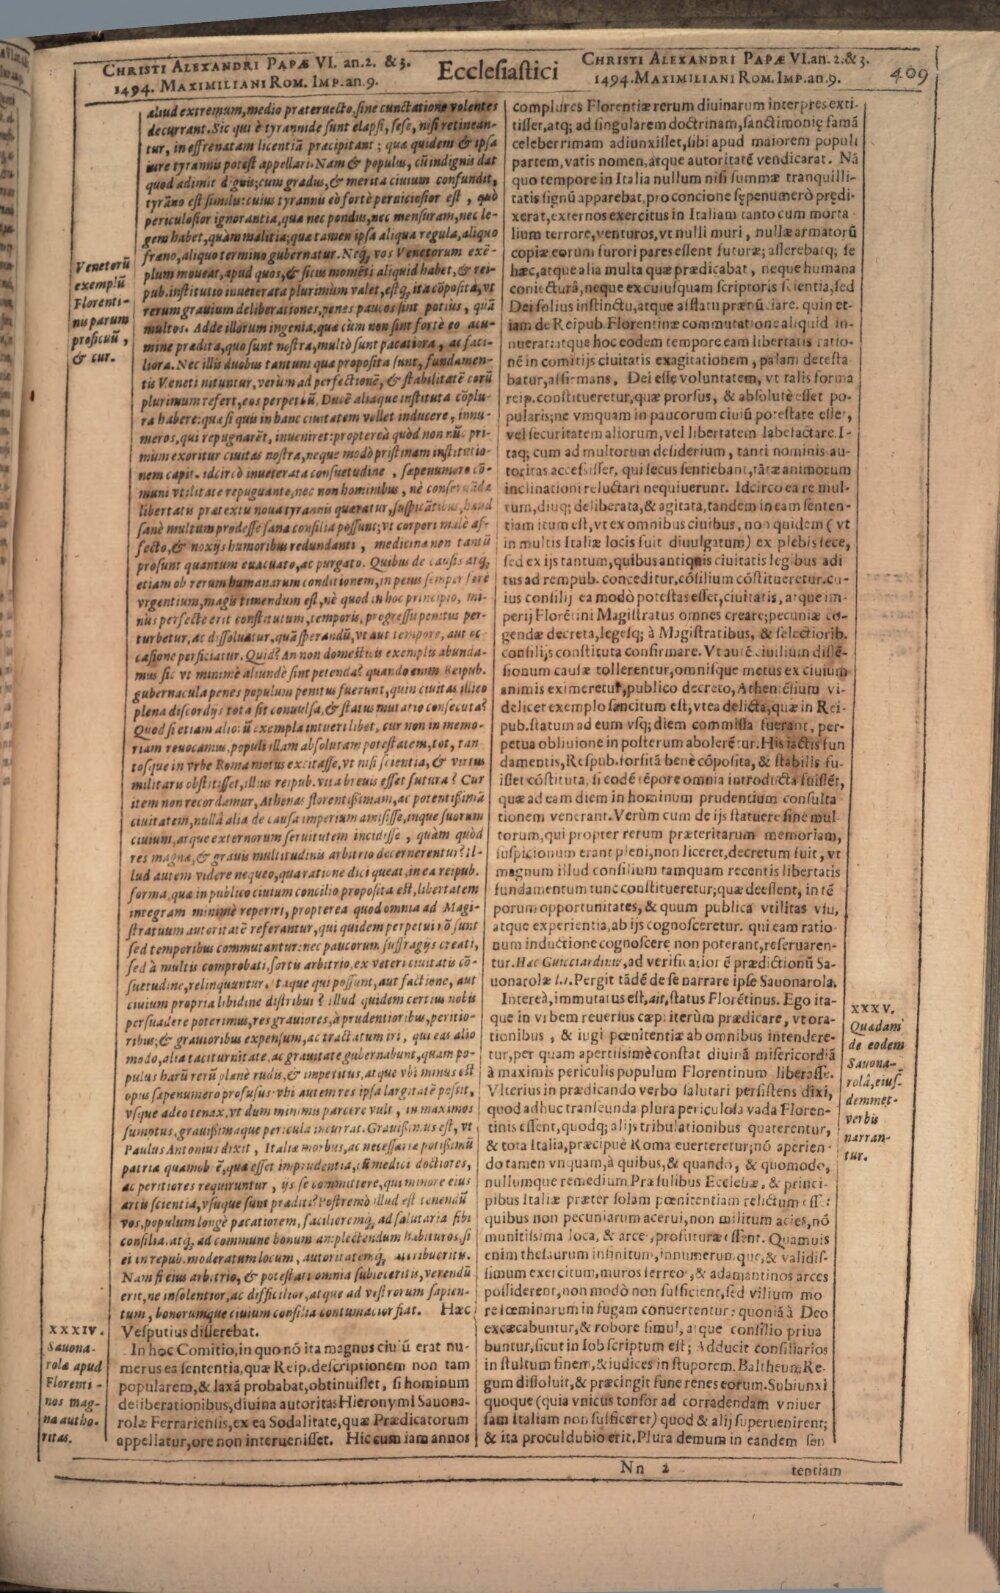 CHRISTI ALEXANDRI PAPÆ VI. an. 2. & 3.
1494. MAXIMILIANI ROM. IMP. an. 9.
Ecclesiastici
CHRISTI ALEXANDRI PAPÆ VI. an. 2. & 3.
1494. MAXIMILIANI ROM. IMP. an. 9.
409
aliud extremum, medio praeteruecto, sine cunctatione volentes
decurrant. Sic qui è tyrannide sunt elapsi, sese, nisi retinean-
tur, in effrenatam licentiã præcipitant; quæ quidem & ipsa
iure tyrannis potest appellari. Nam & populus, cũ indignis dat
quod adimit dignis; cum gradus, & merita ciuium confundit,
tyrãno est similis: cuius tyrannis eò fortè perniciosior est, quò
periculosior ignorantia, quæ nec pondus, nec mensuram, nec le-
gem habet, quàm malitia; quæ tamen ipsa aliqua regula, aliquo
fræno, aliquo termino gubernatur. Neq; vos Venetorum exẽ-
plum moueat, apud quos, & situs momẽti aliquid habet, & rei-
pub. institutio inueterata plurimum valet, estq; ita cõposita, vt
rerum grauium deliberationes, penes paucos sint potius, quã
multos. Adde illorum ingenia, quæ cùm non sint fortè eo acu-
mine prædita, quo sunt nostra, multò sunt pacatiora, ac faci-
liora. Nec illis duobus tantum quæ proposita sunt, fundamen-
tis Veneti nituntur, verùm ad perfectionẽ, & stabilitatẽ eorũ
plurimum refert, eos perpetuũ. Ducẽ aliaque instituta cõplu-
ra habere: quæ si quis in hanc ciuitatem vellet inducere, innu-
meros, qui repugnarẽt, inueniret: propterea quòd non nũc pri-
mùm exoritur ciuitas nostra, neque modò pristinam institutio-
nem capit. idcircò inueterata consuetudine, sæpenumero cõ-
muni vtilitate repugnante, nec non hominibus, nè conseruãdæ
libertatis prætextu noua tyrannis quæratur, suspicãtibus, haud
sanè multum prodesse sana consilia possunt; vt corpori malè af-
fecto, & noxijs humoribus redundanti, medicina non tantũ
prosunt quantum euacuato, ac purgato. Quibus de causis atq;
etiam ob rerum humanarum conditionem, in peius semper ferè
vrgentium, magis timendum est, nè quod in hoc principio, mi-
nùs perfectè erit constitutum, temporis, progressu penitus per-
turbetur, ac dissoluatur, quã sperandũ, vt aut tempore, aut oc-
casione perficiatur. Quid? An non domesticis exemplis abunda-
mus sic vt minimè aliundè sint petenda? quando enim Reipub.
gubernacula penes populum penitus fuerunt, quin ciuitas illico
plena discordijs tota sit conuulsa, & status mutatio consecuta?
Quod si etiam aliorũ exempla intueri libet, cur non in memo-
riam reuocamus, populi illam absolutam potestatem, tot, tan
tosque in vrbe Roma motus excitasse, vt nisi scientia, & virtus
militaris obstitisset, illius reipub. vita breuis esset futura? Cur
item non recordamur, Athenas florentissimam, ac potentissimã
ciuitatem, nullã alia de causa imperium amisisse, inque suorum
ciuium, atque externorum seruitutem incidisse, quàm quòd
res magnæ, & grauis multitudinis arbitrio decernerentur? Il-
lud autem videre nequeo, qua ratione dici queat, in ea reipub.
forma, quæ in publico ciuium concilio proposita est, libertatem
integram minimè reperiri, propterea quod omnia ad Magi-
stratuum autoritatẽ referantur, qui quidem perpetui nõ sunt
sed temporibus commutantur: nec paucorum suffragijs creati,
sed à multis comprobati, sortis arbitrio, ex veteri ciuitatis cõ-
suetudine, relinquuntur. Itaque qui possunt, aut factione, aut
ciuium propria libidine distribui? illud quidem certius nobis
persuadere poterimus, res grauiores, à prudentioribus, peritio-
ribus; & grauioribus expensum, ac tractatum iri, qui eas alio
modo, alia taciturnitate, ac grauitate gubernabunt, quam po-
pulus harũ rerũ planè rudis, & imperitus, atque vbi minus est
opus sæpenumero profusus: vbi autem res ipsa largitatẽ poscit,
vsque adeo tenax, vt dum minimis parcere vult, in maximos
sumptus, grauissimaque pericula incurrat. Grauissimus est, vt
Paulus Antonius dixit, Italiæ morbus, ac necessariæ potissimũ
patriæ quamobrẽ, quæ esset imprudentia, cũ medici doctiores,
ac peritiores requiruntur, ijs se committere, qui minore eius
artis scientia, vsuque sunt præditi? Postremò illud est tenendũ
vos, populum longè pacatiorem, facilioremq; ad salutaria sibi
consilia. atq; ad commune bonum amplectendum habituros, si
ei in repub. moderatum locum, autoritatemq; attribueritis.
Nam si eius arbitrio, & potestati omnia subieceritis, verendũ
erit, ne insolentior, ac difficilior, atque ad vestrorum sapien-
tum, bonorumque ciuium consilia contumacior fiat. Hæc
Vesputius disserebat.
In hoc Comitio, in quo nõ ita magnus ciuiũ erat nu-
merus ea sententia, quæ Reip. descriptionem non tam
popularem, & laxã probabat, obtinuisset, si hominum
deliberationibus, diuina autoritas Hieronymi Sauona-
rolæ Ferrariensis, ex ea Sodalitate, quæ Prædicatorum
appellatur, ore non interuenisset. Hic cum iam annos
Venetorũ
exemplũ
Florenti-
nis parum
proficuũ,
& cur.
XXXIV.
Sauona-
rolæ apud
Florenti-
nos mag-
na autho-
ritas.
complures Florentiæ rerum diuinarum interpres exti-
tisset, atq; ad singularem doctrinam, sanctimonię famã
celeberrimam adiunxisset, sibi apud maiorem populi
partem, vatis nomen, atque autoritatẽ vendicarat. Nã
quo tempore in Italia nullum nisi summæ tranquilli-
tatis signũ apparebat, pro concione sępenumerò prędi-
xerat, externos exercitus in Italiam tanto cum morta
lium terrore, venturos, vt nulli muri, nullæ armatorũ
copiæ eorum furori pares essent futuræ; asserebatq; se
hæc, atque alia multa quæ prædicabat, neque humana
coniecturâ, neque ex cuiusquam scriptoris scientia, sed
Dei solius instinctu, atque afflatu prænũciare. quin et-
iam de Reipub. Florentinæ commutatione aliquid in-
nuerat: atque hoc eodem tempore eam libertatis ratio-
nẽ in comitijs ciuitatis exagitationem, palam detesta
batur, affirmans, Dei esse voluntatem, vt talis forma
reip. constitueretur, quæ prorsus, & absolutè esset po-
pularis; ne vmquam in paucorum ciuiũ potestate esset,
vel securitatem aliorum, vel libertatem labefactare. I-
taq; cum ad multorum desiderium, tanti nominis au-
toritas accessisset, qui secus sentiebant, tãtæ animorum
inclinationi reluctari nequiuerunt. Idcirco ea re mul-
rum, diuq; deliberata, & agitata, tandem in eam senten-
tiam itum est, vt ex omnibus ciuibus, non quidem (vt
in multis Italiæ locis fuit diuulgatum) ex plebis fece,
sed ex ijs tantum, quibus antiquis ciuitatis legibus adi
tus ad rempub. conceditur, cõsilium cõstitueretur. cu-
ius consilij ea modò potestas esset, ciuitatis, atque im-
perij Florẽtini Magistratus omnes creare; pecuniæ co-
gendæ decreta, legesq; à Magistratibus, & selectiorib.
consilijs constituta confirmare. Vt autẽ ciuilium dissẽ-
sionum causæ tollerentur, omnisque metus ex ciuium
animis eximeretur, publico decreto, Atheniẽsium vi-
delicet exemplo sancitum est, vt ea delicta, quæ in Rei-
pub. statum ad eum vsq; diem commissa fuerant, per-
petua obliuione in posterum abolerẽtur. His iactis fun
damentis, Respub. forsitã benè cõposita, & stabilis fu-
isset cõstituta, si eodẽ tẽpore omnia introducta fuissẽt,
quæ ad eam diem in hominum prudentium consulta
tionem venerant. Verùm cum de ijs statuere sine mul-
torum, qui propter rerum præteritarum memoriam,
suspicionum erant pleni, non liceret, decretum fuit, vt
magnum illud consilium tamquam recentis libertatis
fundamentum tunc constitueretur; quæ deessent, in tẽ
porum opportunitates, & quum publica vtilitas vsu,
atque experientia, ab ijs cognosceretur. qui eam ratio-
num inductione cognoscere non poterant, reseruaren-
tur. Hæc Guicciardinus, ad verificatiorẽ prædictionũ Sa-
uonarolæ l. 1. Pergit tãdẽ de se narrare ipse Sauonarola.
Intereà, immutatus est, ait, status Florẽtinus. Ego ita-
que in vrbem reuersus cæpi iterùm prædicare, vt ora-
tionibus, & iugi pœnitentiæ ab omnibus intendere-
tur, per quam apertissimè constat diuinã misericordiã
à maximis periculis populum Florentinum liberasse.
Vlterius in prædicando verbo salutari persistens dixi,
quod adhuc transeunda plura periculosa vada Floren-
tinis essent, quodq; alijs tribulationibus quaterentur,
& tota Italia, præcipuè Roma euerteretur; nõ aperien-
do tamen vnquam, à quibus, & quando, & quomodo,
nullumque remedium Præsulibus Ecclesiæ, & princi-
pibus Italiæ præter solam pœnitentiam relictum esse:
quibus non pecuniarum acerui, non militum acies, nõ
munitissima loca, & arces, profuturæ essent. Quamuis
enim thesaurum infinitum, innumerumque, & validis-
simum exercitum, muros ferreos, & adamantinos arces
possiderent, non modò non sufficient, sed vilium mo
re fœminarum in fugam conuertentur: quoniã à Deo
excæcabuntur, & robore simul, atque consilio priua
buntur, sicut in Iob scriptum est; Adducit consiliarios
in stultum finem, & iudices in stuporem. Baltheum Re-
gum dissoluit, & præcingit fune renes eorum. Subiunxi
quoque (quia vnicus tonsor ad corradendam vniuer
sam Italiam non sufficeret) quod & alij superuenirent;
& ita procul dubio erit. Plura demum in eandem sen
XXXV.
Quædam
de eodem
Sauona-
rolâ, eius-
demmet-
verbis
narran-
tur.
Nn 2
tentiam